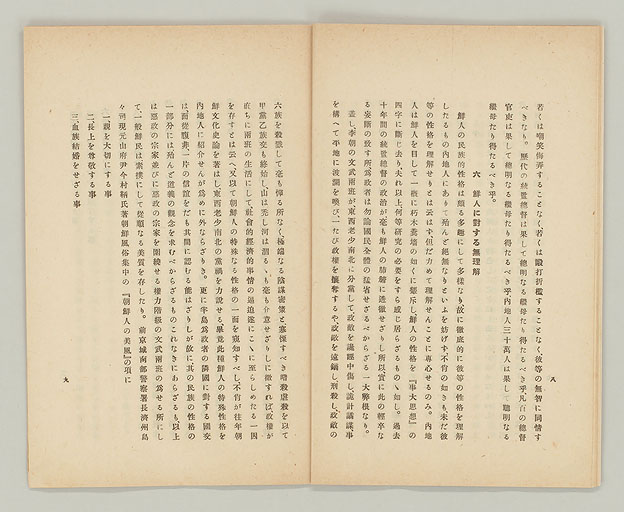 若くは嘲笑侮弄することなく若くは毆打折檻することなく彼等の無智に同情す
べきなり。歴代の統監總督は果して總明なる繼母たり得たるべき乎凡百の總督
官吏は果して總明なる繼母たり得たるべき乎内地人三十萬人は果して聰明なる
繼母たり得たるべき乎。
六 鮮人に對する無理解
鮮人の民族的性格は頗る多趣にして多樣なり故に徹底的に彼等の性格を理解
したるもの内地人にありて殆んど絶無なりといふを妨げず不肖の如きも未だ彼
等の性格を理解せりとは云はず但だ力めて理解せんことに專心せるのみ。内地
人は鮮人を目して一概に朽木糞墻の如くに蔑斥し鮮人の性格を『事大思想』の
四字に斷じ去り夫れ以上何等研究の必要をすら感じ居らざるものゝ如し。過去
十年間の統監總督の政治が毫も鮮人の肺腑に透徹せざりし所以實に此の輕卒な
る妄斷の致す所爲政者は勿論國民全體の猛省せざるべからざる一大弊根なり。
蓋し李朝の文武兩班が東西老少南北に分黨して政敵を讒誣中傷し詭計譎謀事
を構へて平地に波瀾を喚び一たび政權を攘奪するや政敵を遠竄し刑殺し政敵の
八
六族を殺戮して毫も憚る所なく極端なる陰謀密策と寒慄すべき嗜殺虐殺を以て
甲黨乙族交も終始し山は禿し河は涸るゝも毫も介意せざりしに徴すれば政權が
直ちに兩班の生活にして社會的經濟的事情の逼迫遂にこゝに至らしめたる一因
を存すとは云へ又以て朝鮮人の特殊なる性格の一面を窺知すべし不肖が往年朝
鮮文化史論を著はし東西老少南北の黨禍を力説せる畢竟此種鮮人の特殊性格を
内地人に紹介せんが爲めに外ならざりき。更に半島爲政者の隣國に對する國交
は面從腹非一片の信誼をだも其間に認むる能はざりしが故に其の民族の性格の
一部分には殆んど道義の觀念を求むべからざるものこれなきにあらざるも以上
は惡政の宗家並びに惡政の宗家を圍繞せる權力階級の文武兩班の爲せる所にし
て一般鮮民は素撲にして從順なる美質を存したり。前京城南部警察署長濟州島
々司現元山府尹今村鞆氏著朝鮮風俗集中の『朝鮮人の美風』の項に
一、親を大切にする事
二、長上を尊敬する事
三、血族結婚をせざる事
九